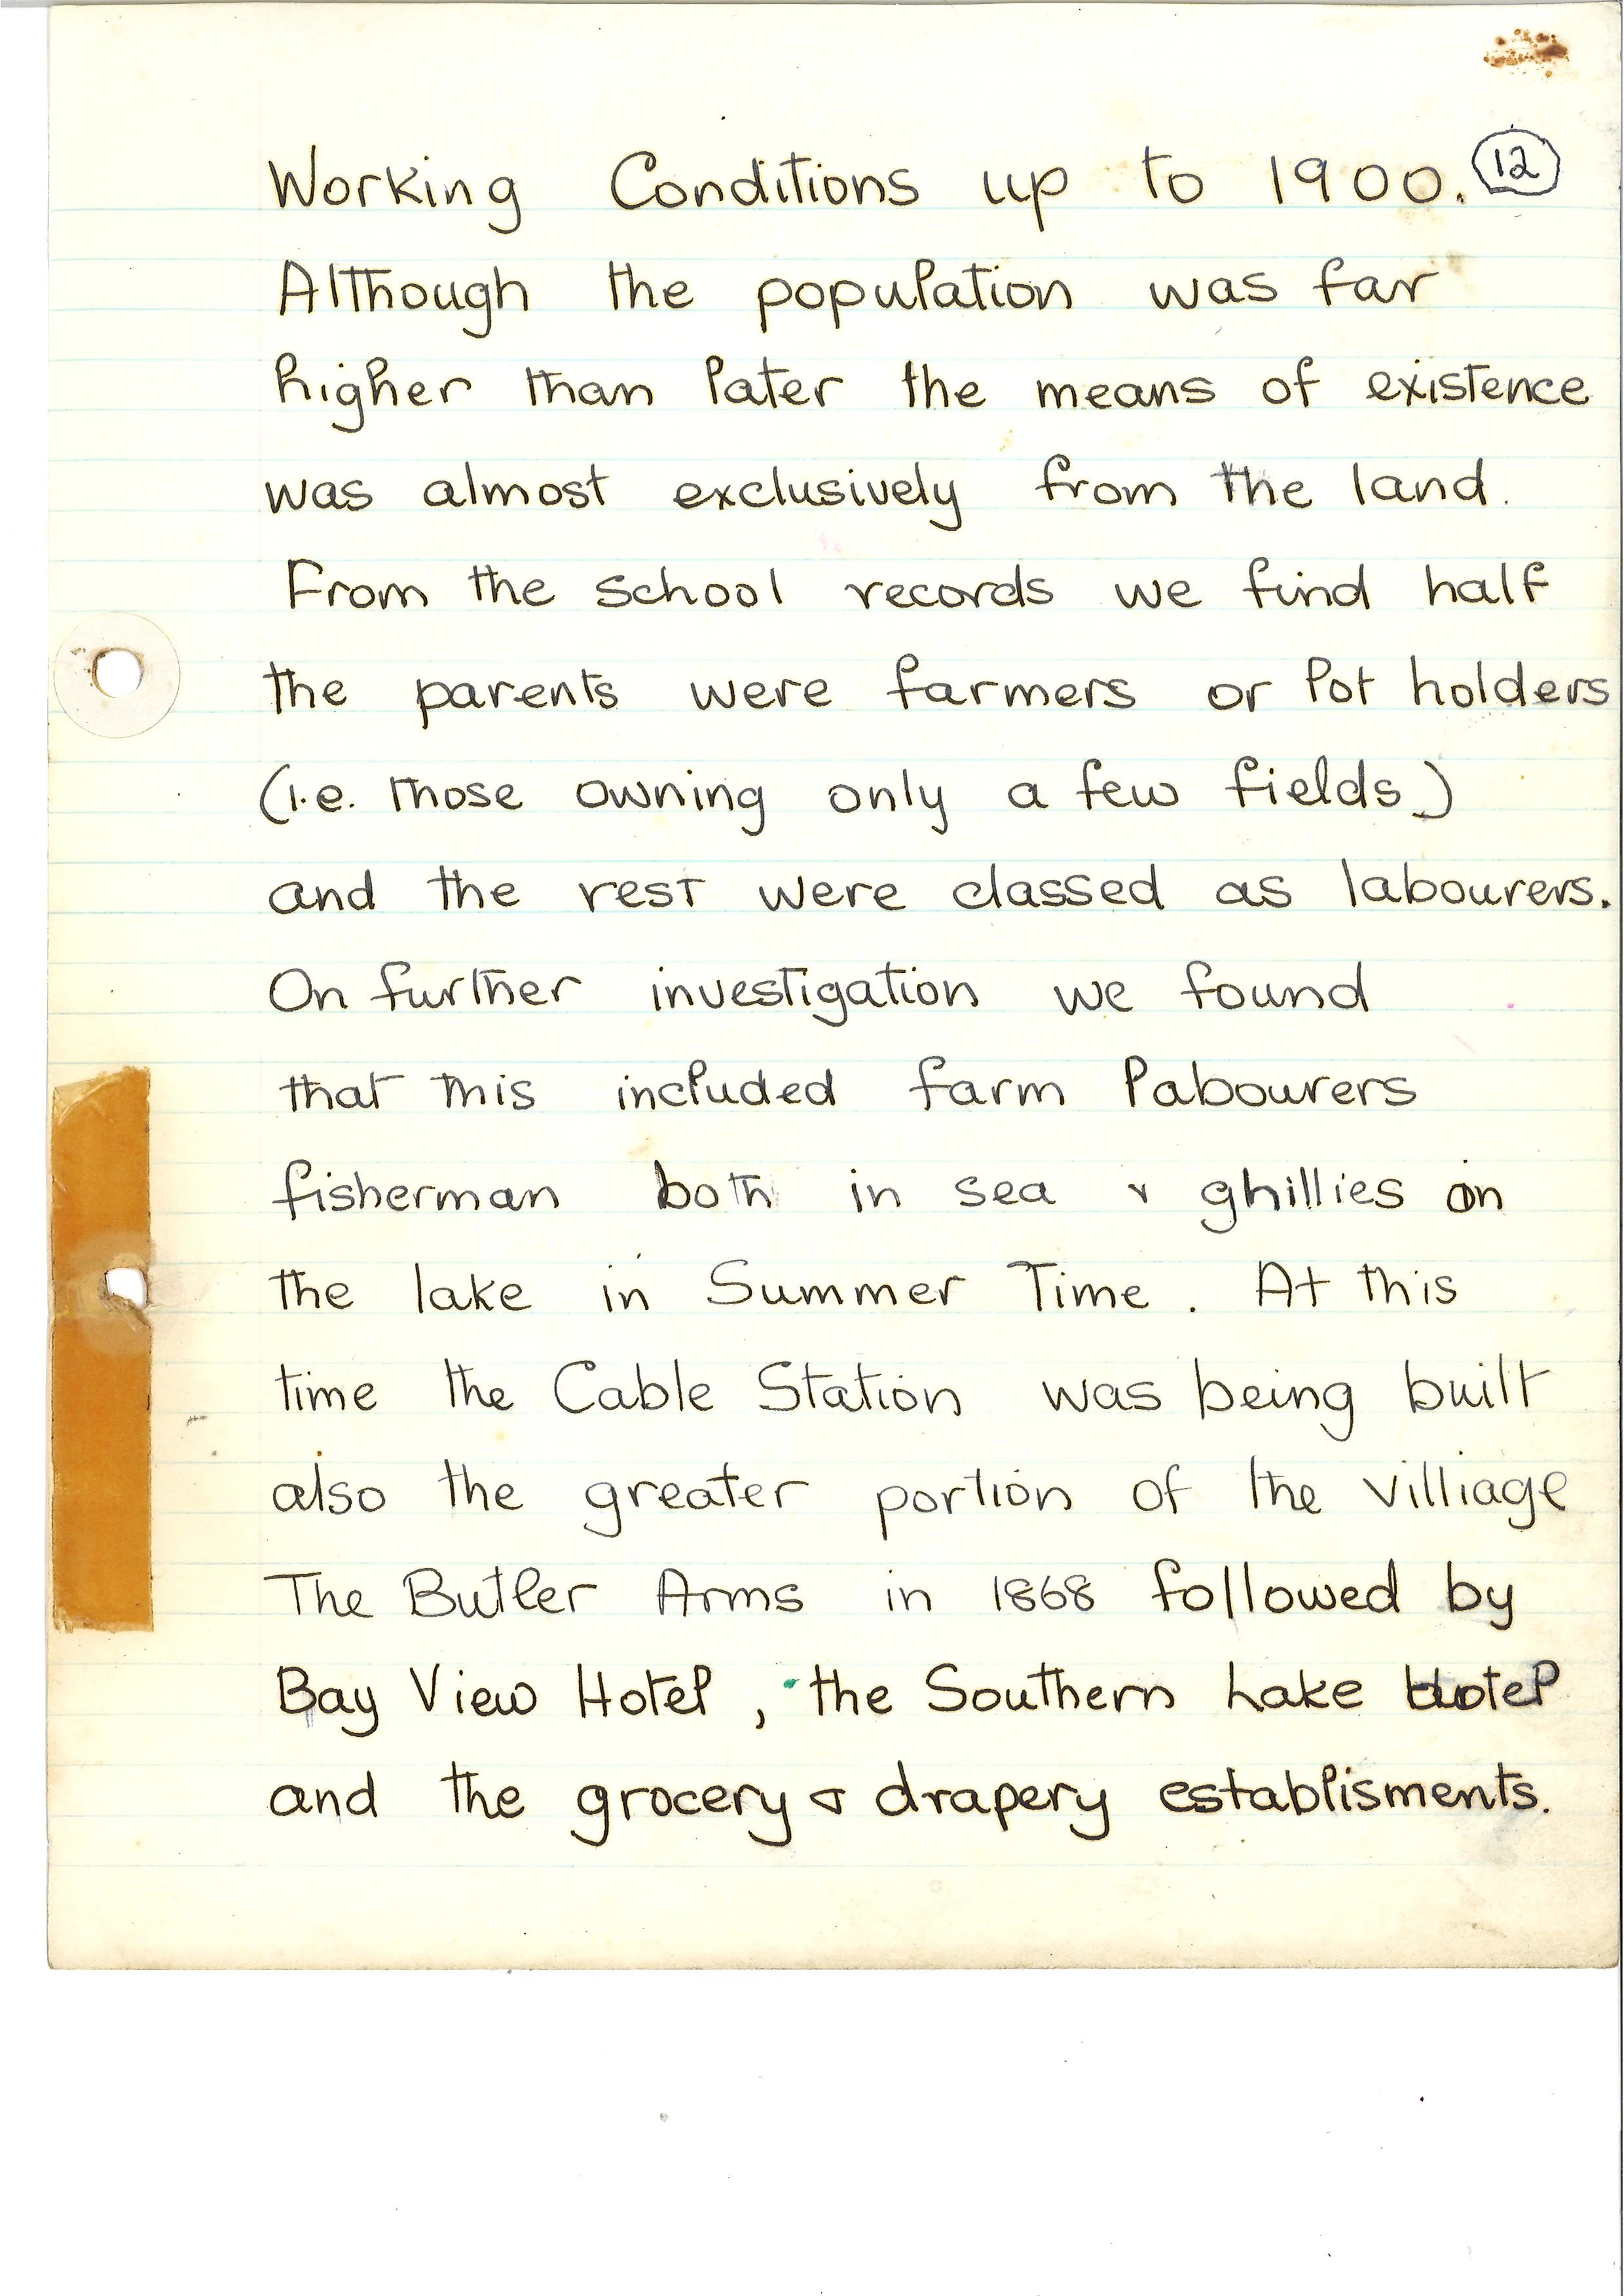 Working Conditions up to 1900. 12
Although the population was far
higher than later the means of existence
was almost exclusively from the land.
From the school records we find half
the parents were farmers or lot holders
(i.e. those owning only a few fields)
and the rest were classed as labourers.
On further investigation we found
that this included farm labourers
fisherman both in sea & ghillies on
the lake in Summer Time. At this
time the Cable Station was being built
also the greater portion of the villiage
The Butler Arms in 1868 followed by
Bay View Hotel, the Southern Lake Hotel
and the grocery & drapery establisments.